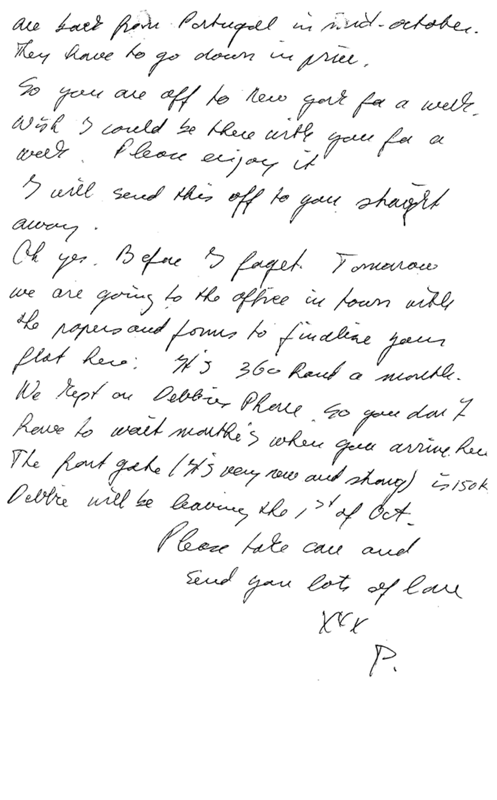 are back from Portugal in mid-october.
They have to go down in price.
So you are off to New york for a week.
Wish I could be there with you for a
week. Please enjoy it
I will send this off to you straight
away.
Oh yes. Before I forget. Tomorrow
we are going to the office in town with
the papers and forms to findline your
flat here. It's 360 Rand a month.
We kept on Debbies Phone. So you don't
have to wait months when you arrive here
The front gate (It's very new and strong) is 150R
Debbie will be leaving the 1st of Oct.
Please take care and
send you lots of love
xxx
P.